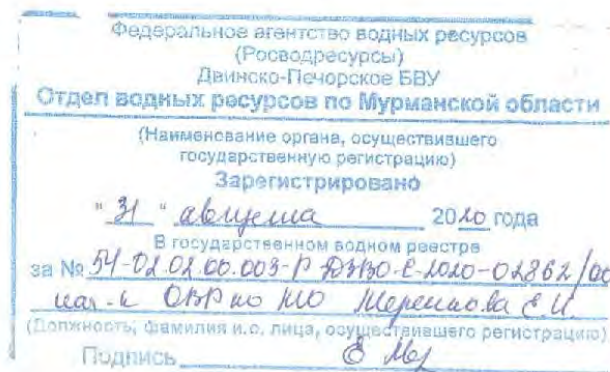 Федеральное агентство водных ресурсов
(Росводресурсы)
Двинско-Печорское БВУ
Отдел водных ресурсов по Мурманской области
(Наименование органа, осуществившего
государственную регистрацию)
Зарегистрировано
"31" августа 2020 года
В государственном водном реестре
за № 54-02.02.00.003-Р-ДЗВО-С-2020-02862/00
нач-к ОВР по МО Е.И.
(Должность, фамилия и.о. лица, осуществившего регистрацию)
Подпись